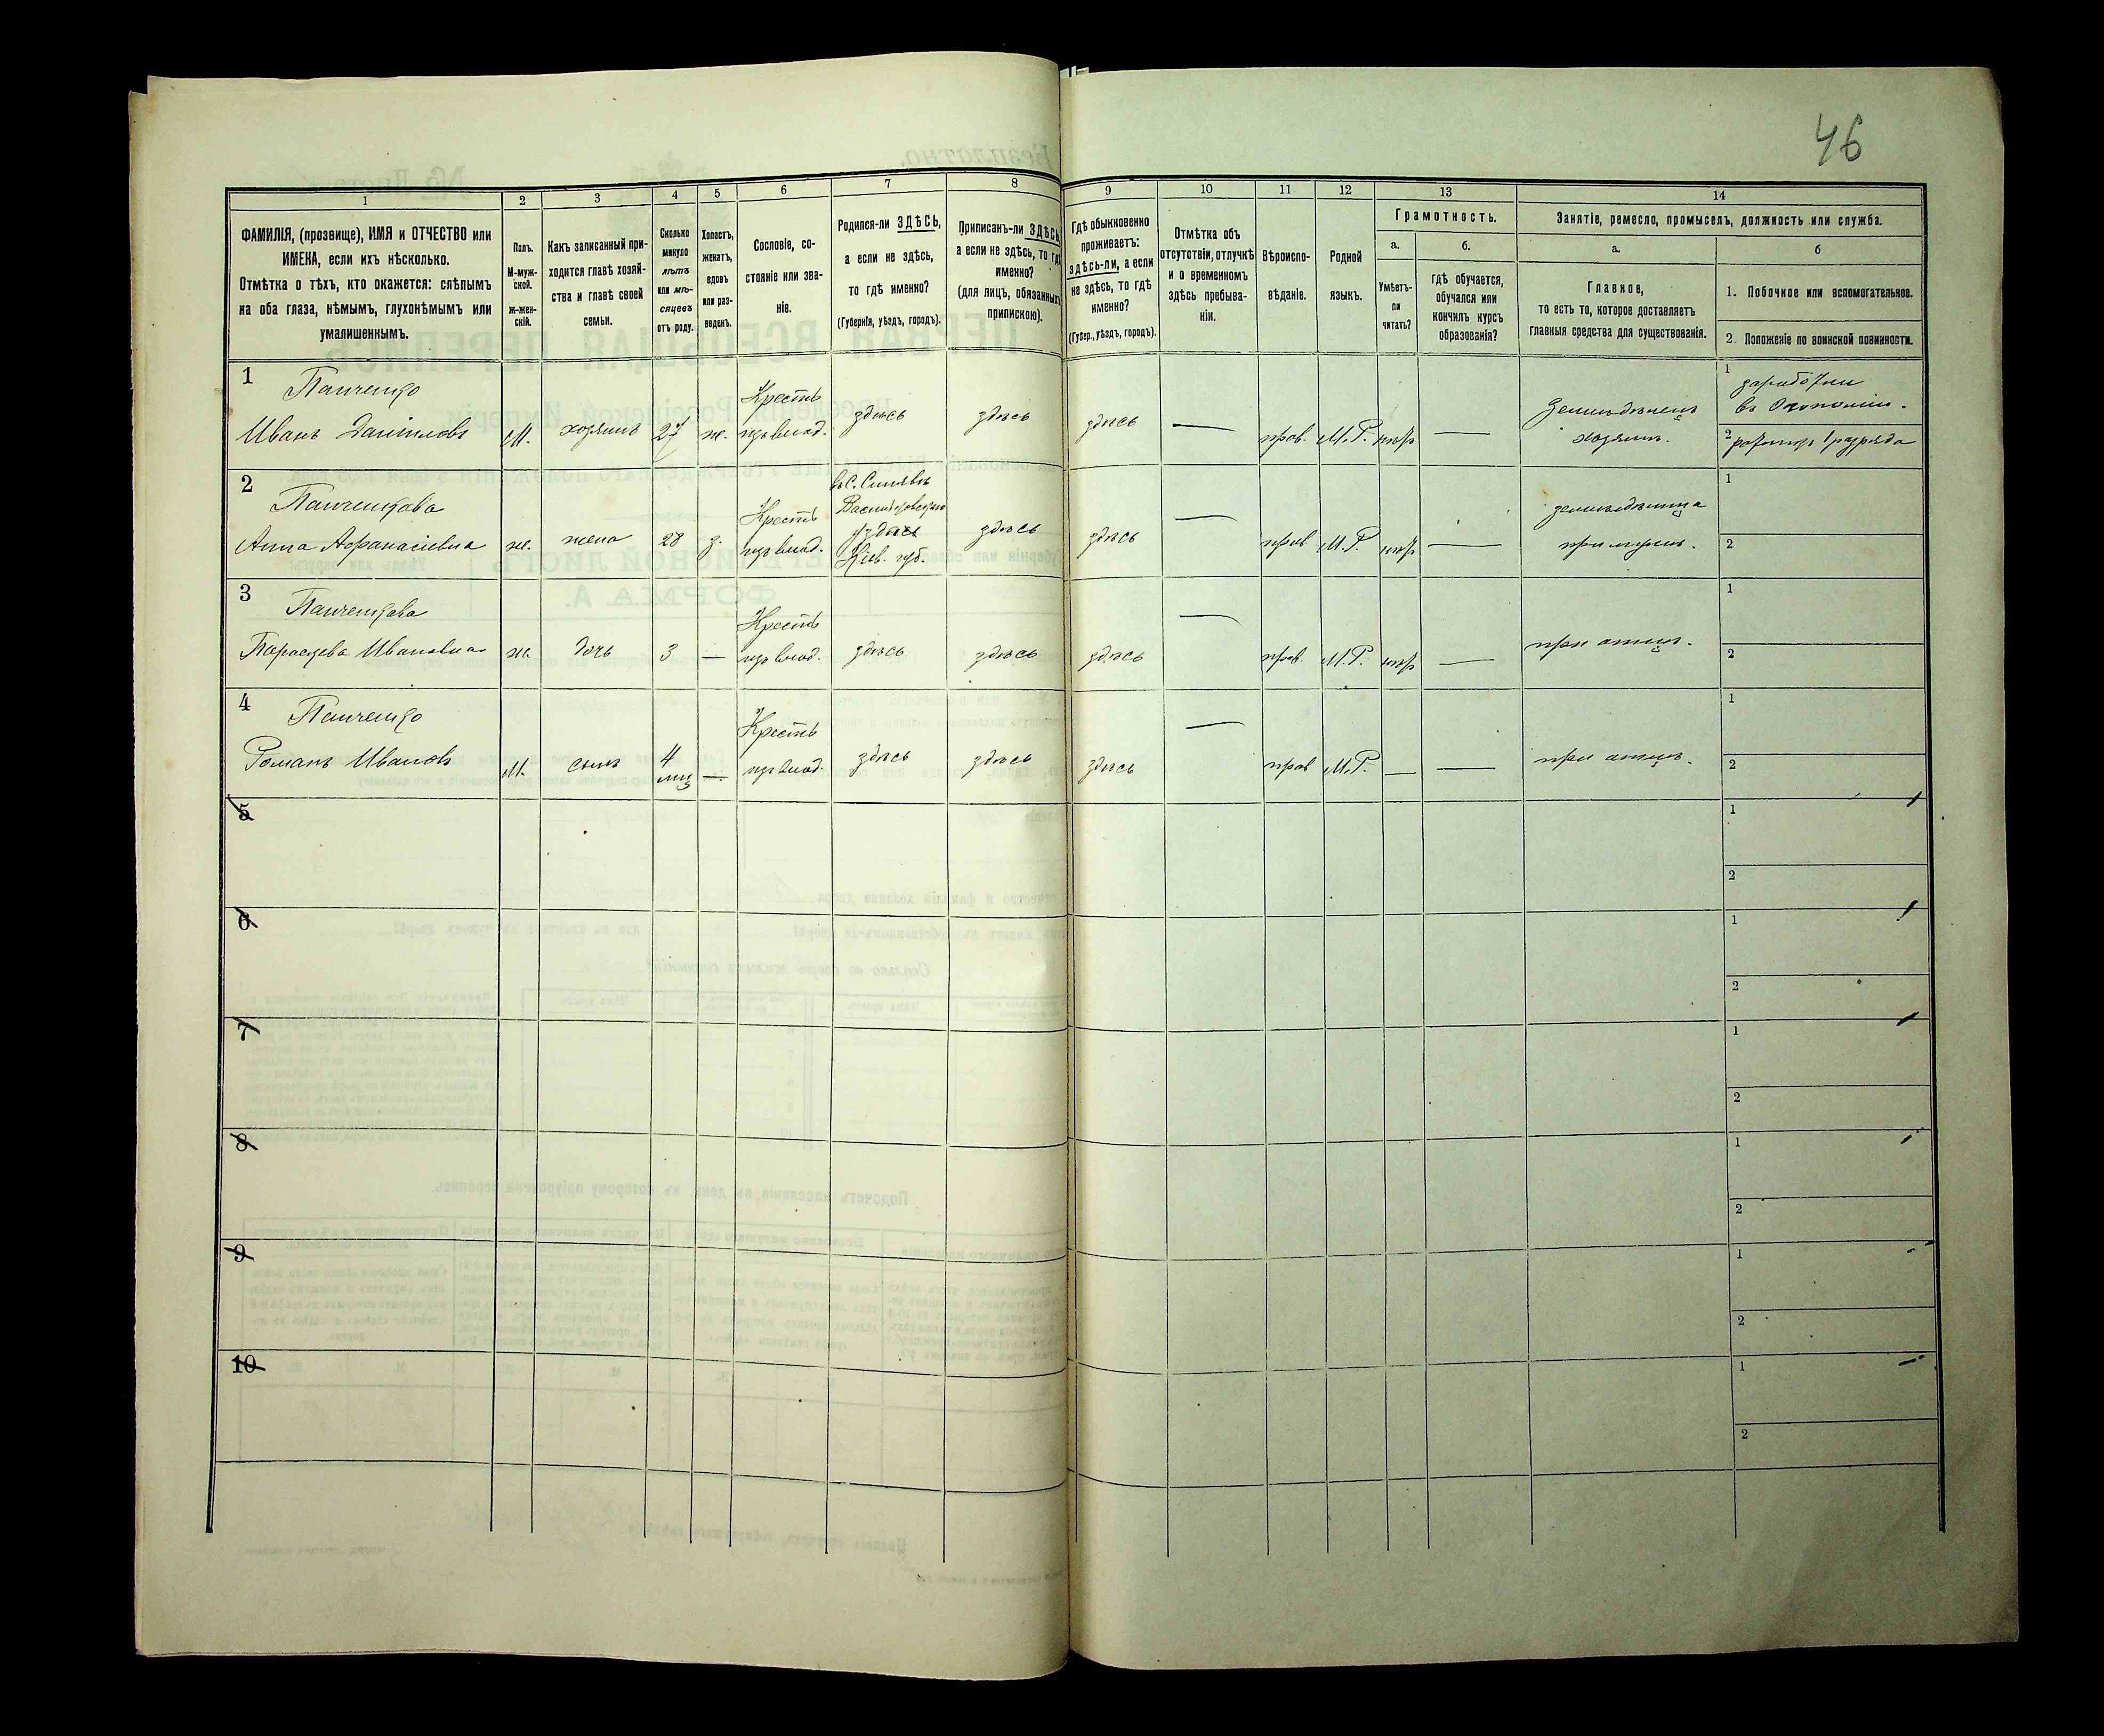 46
1 2 3 4 5 6 7 8 9 10 11 12 13 14
ФАМИЛІЯ, (прозвище), ИМЯ и ОТЧЕСТВО или
ИМЕНА, если ихъ нѣсколько.
Отмѣтка о тѣхъ, кто окажется: слѣпымъ
на оба глаза, нѣмымъ, глухонѣмымъ или
умалишеннымъ.
Полъ.
М-муж-
ской.
Ж-жен-
скій.
Какъ записанный при-
ходится главѣ хозяй-
ства и главѣ своей
семьи.
Сколько
минуло
лѣтъ
или мѣ-
сяцевъ
отъ роду.
Холостъ,
женатъ,
вдовъ
или раз-
веденъ.
Сословіе, со-
стояніе или зва-
ніе.
Родился-ли ЗДѢСЬ,
а если не здѣсь,
то гдѣ именно?
(Губернія, уѣздъ, городъ).
Приписанъ-ли ЗДѢСЬ,
а если не здѣсь, то гдѣ
именно?
(для лицъ, обязанныхъ
припискою).
Гдѣ обыкновенно
проживаетъ:
здѣсь-ли, а если
не здѣсь, то гдѣ
именно?
(Губер., уѣздъ, городъ).
Отмѣтка объ
отсутствіи, отлучкѣ
и о временномъ
здѣсь пребыва-
ніи.
Вѣроиспо-
вѣданіе.
Родной
языкъ.
Грамотность.
а.
Умѣетъ-
ли
читать?
б.
гдѣ обучается,
обучался или
кончилъ курсъ
образованія?
Занятіе, ремесло, промыселъ, должность или служба.
а.
Главное,
то есть то, которое доставляетъ
главныя средства для существованія.
б
1. Побочное или вспомогательное.
2. Положеніе по воинской повинности.
1
Панченко
Иванъ Даніиловъ
М.
хозяинъ
27
ж.
Крестн
изъ влад.
здѣсь
здѣсь
здѣсь
—
прав.
М.Р.
нѣтъ
—
Земледѣлецъ
хозяинъ.
1
заработки
въ Экономіи.
2 ратникъ 1 разряда
2
Панченкова
Анна Афанасіевна
ж.
жена
28
з.
Крестн
изъ влад.
въ С.
Васильковскаго
уѣзда
Кіев. губ.
здѣсь
здѣсь
—
прав
М.Р.
нѣтъ
—
земледѣлица
при мужѣ.
1
2
3
Панченкова
Параскева Ивановна
ж.
дочь
3
—
Крестн
изъ влад.
здѣсь
здѣсь
здѣсь
—
прав.
М.Р.
нѣтъ
—
при отцѣ.
1
2
4
Панченко
Романъ Ивановъ
М.
сынъ
4
мц
—
Крестн
изъ влад.
здѣсь
здѣсь
здѣсь
—
прав
М.Р.
—
—
при отцѣ.
1
2
5
1
2
6
1
2
7
1
2
8
1
2
9
1
2
10
1
2